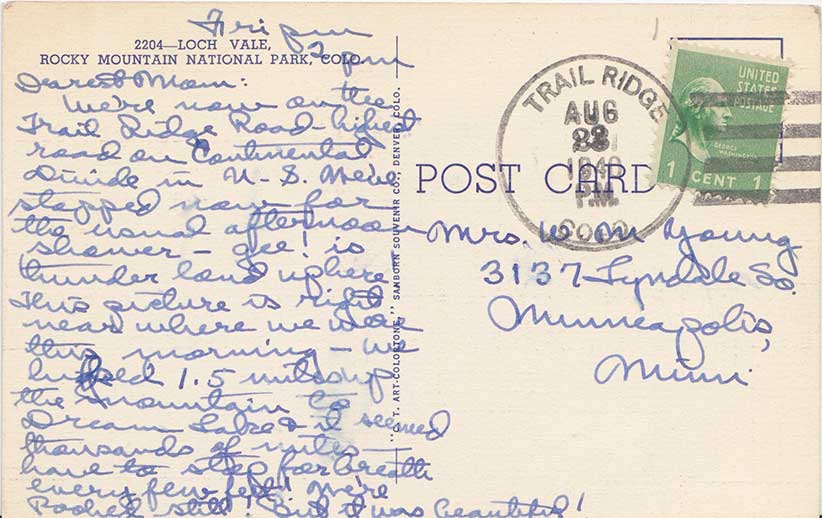 Fri pm
2 pm
2204—LOCH VALE,
ROCKY MOUNTAIN NATIONAL PARK, COLO.
Dearest Mom:
We're now on the
Trail Ridge Road - highest
road on Continental
Divide in U.S. We've
stopped now for
the usual afternoon
shower - gee! is
thunder loud up here
This picture is right
near where we were
this morning - we
hiked 1.5 miles up
the mountain to
Dream Lake & it seemed
thousands of miles -
have to stop for breath
every few feet! We're
pooped still! But it was beautiful!
"C.T. ART-COLORTONE" SANBORN SOUVENIR CO., DENVER, COLO.
POST CARD
TRAIL RIDGE
AUG
P.M.
COLO
UNITED
STATES
POSTAGE
GEORGE
WASHINGTON
1 CENT 1
Mrs. Young
3137 Lyndale So.
Minneapolis,
Minn.